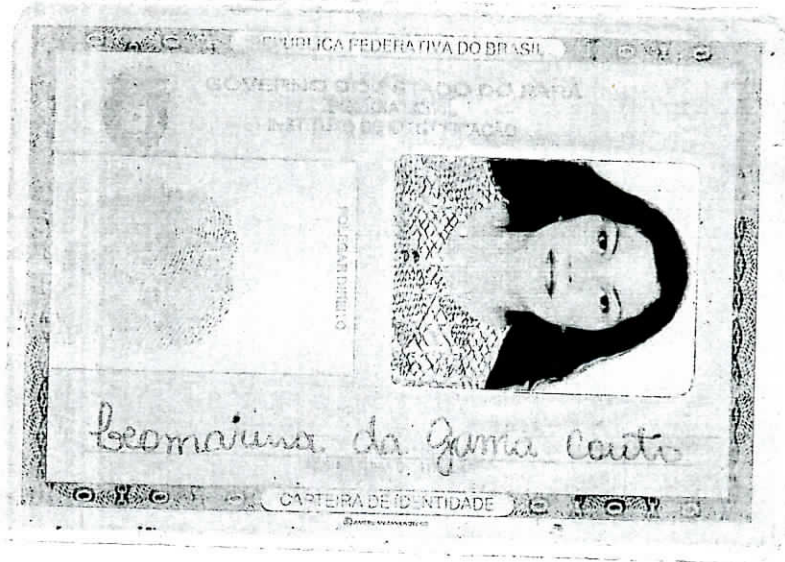 REPÚBLICA FEDERATIVA DO BRASIL
GOVERNO DO ESTADO DO PARÁ
INSTITUTO DE IDENTIFICAÇÃO
POLEGAR DIREITO
Leomarina da Gama Couto
CARTEIRA DE IDENTIDADE